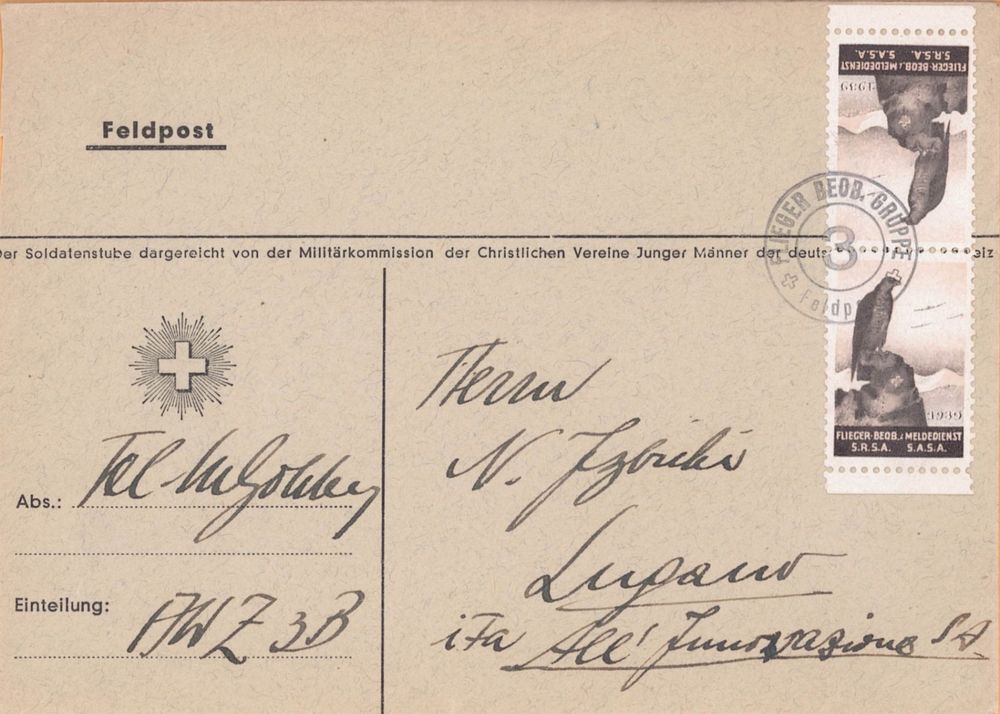 Feldpost
FLIEGER-BEOB. u. MELDEDIENST
S.R.S.A. S.A.S.A.
1939
FLIEGER BEOB. GRUPPE
3
Feldp
der Soldatenstube dargereicht von der Militärkommission der Christlichen Vereine Junger Männer der deuts eiz
1939
FLIEGER-BEOB. u. MELDEDIENST
S.R.S.A. S.A.S.A.
Herrn
N.
Lugano
iFa All' Innovazione SA
Abs.: Tel
Einteilung: AWZ 3B